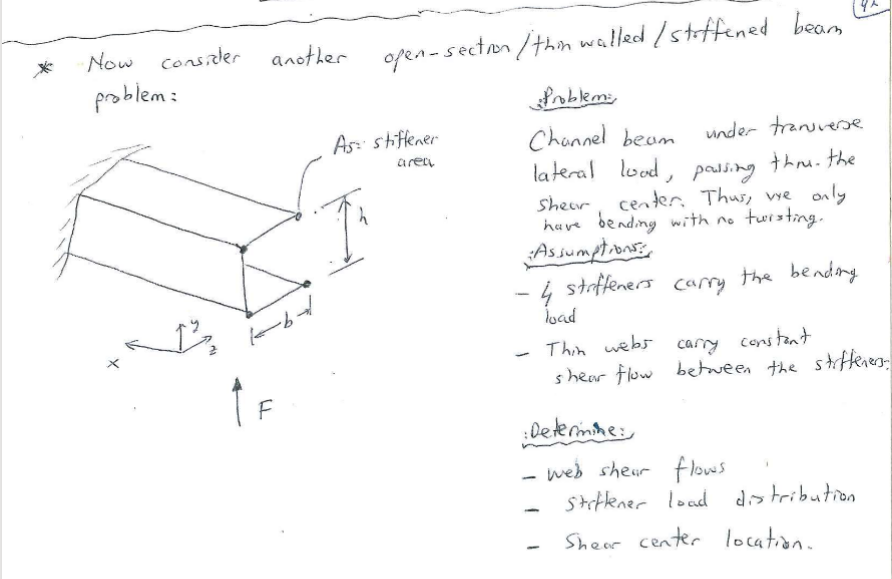 42
* Now consider another open-section/thin walled/stiffened beam
problem:
As: stiffener
area
h
b
y
x
z
F
:Problem:
Channel beam under transverse
lateral load, passing thru. the
shear center. Thus, we only
have bending with no twisting.
:Assumptions:
- 4 stiffeners carry the bending
load
- Thin webs carry constant
shear flow between the stiffeners.
:Determine:
- web shear flows
- Stiffener load distribution
- Shear center location.